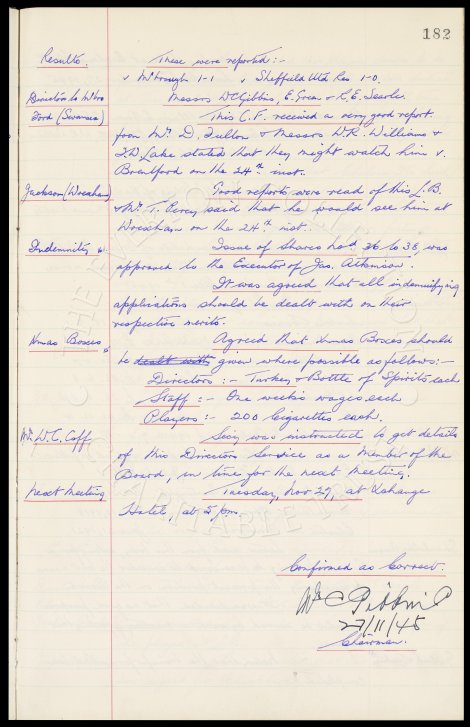 182
Results. These were reported:-
v Mbrough 1-1 v Sheffield Utd Res 1-0.
Directors to M'bro Messrs W.C. Gibbins, E. Green & R.E. Searle.
Ford (Swansea) This C.F. received a very good report
from Mr D. Fulton & Messrs W.R. Williams &
T.W Lake stated that they might watch him v.
Brentford on the 24th inst.
Jackson (Wrexham) Good reports were read of this L.B.
& Mr T. Percy said that he would see him at
Wrexham on the 24th inst.
Indemnity Issue of Shares No's 36 to 38, was
approved to the Executor of Jas. Atkinson.
It was agreed that all indemnifying
applications should be dealt with on their
respective merits.
Xmas Boxes Agreed that Xmas Boxes should
be dealt with given where possible as follows:-
Directors:- Turkey & Bottle of Spirits each
Staff:- One week's wages each
Players:- 200 Cigarettes each.
Mr W.C. Cuff Secy was instructed to get details
of his Directors Service as a Member of the
Board, in time for the next Meeting.
Next Meeting Tuesday, Nov 27, at Exchange
Hotel, at 5 pm.
Confirmed as Correct.
Wm C Gibbins
27/11/45
Chairman.